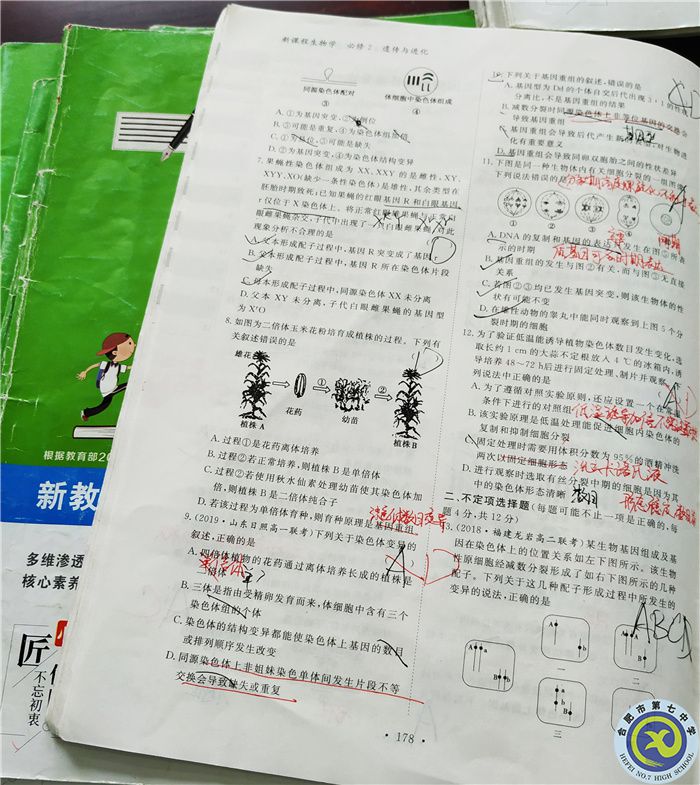 新课程生物学 必修2 遗传与进化
同源染色体配对
③
体细胞中染色体组成
④
A. ①为基因突变,②为倒位
B. ③可能是重复,④为染色体组加倍
C. ①为易位,③可能是缺失
D. ②为基因突变,④为染色体结构变异
7. 果蝇性染色体组成为XX、XXY的是雌性,XY、
XYY、XO(缺少一条性染色体)是雄性,其余类型在
胚胎时期致死;已知果蝇的红眼基因R和白眼基因
r仅位于X染色体上。将正常红眼雄果蝇与正常白
眼雌果蝇杂交,子代中出现了一只白眼雌果蝇,对此
现象分析不合理的是
A. 父本形成配子过程中,基因R突变成了基因r
B. 父本形成配子过程中,基因R所在染色体片段
缺失
C. 母本形成配子过程中,同源染色体XX未分离
D. 父本XY未分离,子代白眼雌果蝇的基因型
8. 如图为二倍体玉米花粉培育成植株的过程。下列有
关叙述错误的是
雄花
植株A
花药
①
幼苗
②
植株B
A. 过程①是花药离体培养
B. 过程②若正常培养,则植株B是单倍体
C. 过程②若使用秋水仙素处理幼苗使其染色体加
倍,则植株B是二倍体纯合子
D. 若该过程为单倍体育种,则育种原理是基因重组
9. (2019·山东日照高一联考)下列关于染色体变异的
叙述,正确的是
A. 四倍体植物的花药通过离体培养长成的植株是
B. 三体是指由受精卵发育而来,体细胞中含有三个
染色体组的个体
C. 染色体的结构变异都能使染色体上基因的数目
或排列顺序发生改变
D. 同源染色体上非姐妹染色单体间发生片段不等
交换会导致缺失或重复
· 178 ·
10. 下列关于基因重组的叙述,错误的是
A. 基因型为Dd的个体自交后代出现3:1的性状
分离比,不是基因重组的结果
B. 减数分裂时同源染色体上非等位基因的交叠会
导致基因重组
D. 基因重组会导致同卵双胞胎之间的性状差异
11. 下图是同一种生物体内有关细胞分裂的一组图像,
下列说法错误的是
① ② ③ ④
A. DNA的复制和基因的表达
示的时期
B. 基因重组的发生与图②有关,而与图③无直接
关系
C. 若图②③均已发生基因突变,则该生物体的性
状有可能不变
D. 在雄性动物的睾丸中能同时观察到上图5个分
裂时期的细胞
12. 为了验证低温能诱导植物染色体数目发生变化,选
取长约1 cm的大蒜不定根放入4 ℃的冰箱内,诱
导培养48~72 h后进行固定处理、制片并观察。下
列说法中正确的是
A. 为了遵循对照实验原则,还应设置一个在常温
条件下进行的对照组
B. 该实验原理是低温处理能促进细胞内染色体的
复制和抑制细胞分裂
C. 固定处理时需要用体积分数为95%的酒精冲洗
两次以固定细胞形态
D. 进行观察时选取有丝分裂中期的细胞是因为其
中的染色体形态清晰
二、不定项选择题(每题可能不止一项是正确的,每
题4分,共12分)
3. (2018·福建龙岩高二联考)某生物基因组成及基
因在染色体上的位置关系如左下图所示。该生物
性原细胞经减数分裂形成了如右下图所示的几种
配子。下列关于这几种配子形成过程中所发生的
变异的说法,正确的是
ABCD
一 二
三
根据教育部20
新教
多维渗透
核心素养
匠
不忘初衷
合肥市第七中学
HEFEI NO.7 HIGH SCHOOL